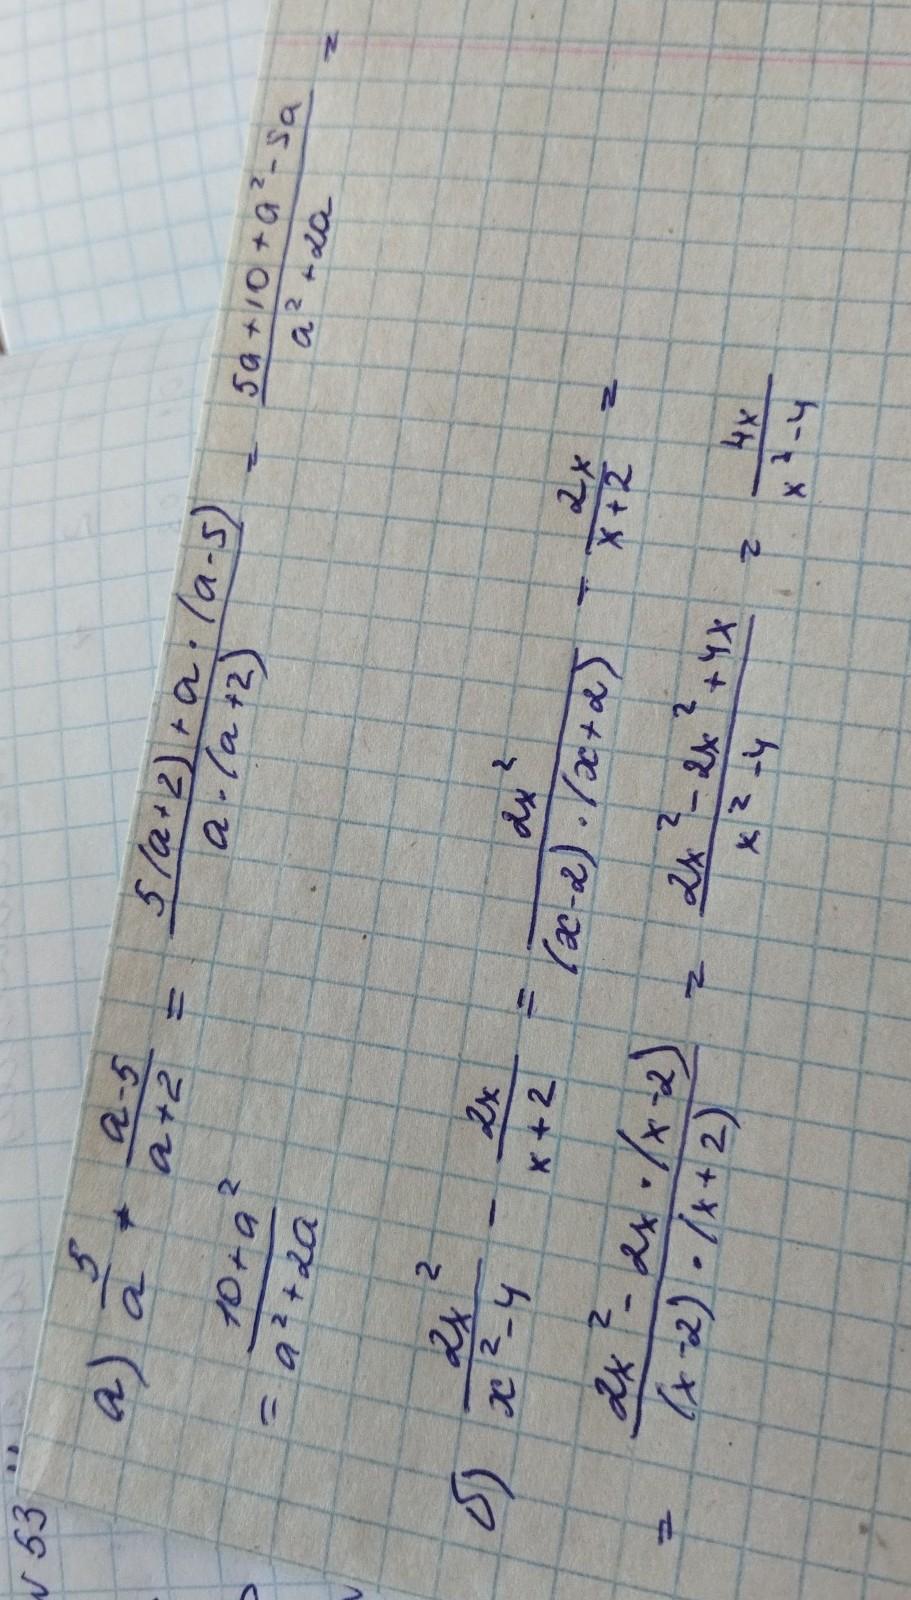 №53
а) 5/a + (a-5)/(a+2) = (5(a+2)+a·(a-5))/(a·(a+2)) = (5a+10+a²-5a)/(a²+2a) =
= (10+a²)/(a²+2a)
б) 2x²/(x²-4) - 2x/(x+2) = 2x²/((x-2)·(x+2)) - 2x/(x+2) =
= (2x²-2x·(x-2))/((x-2)·(x+2)) = (2x²-2x²+4x)/(x²-4) = 4x/(x²-4)